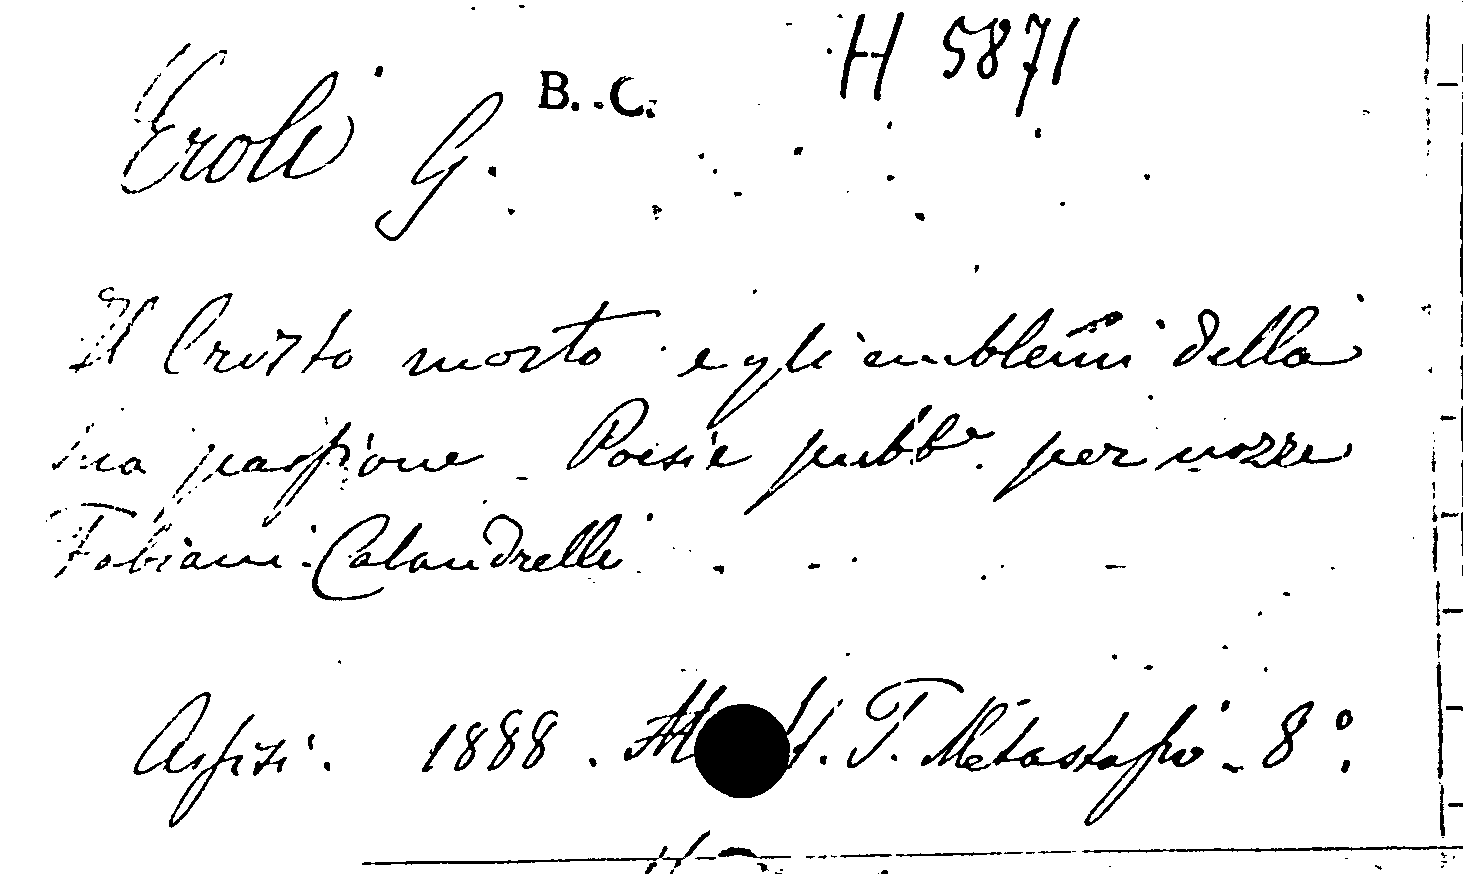 H 5871
B. C.
Eroli G.
Il Cristo morto e gli emblemi della
sua passione _ Poesie pubbe. per nozze
Fabiani-Calandrelli
Assisi. 1888. T. Metastasio _ 8°.